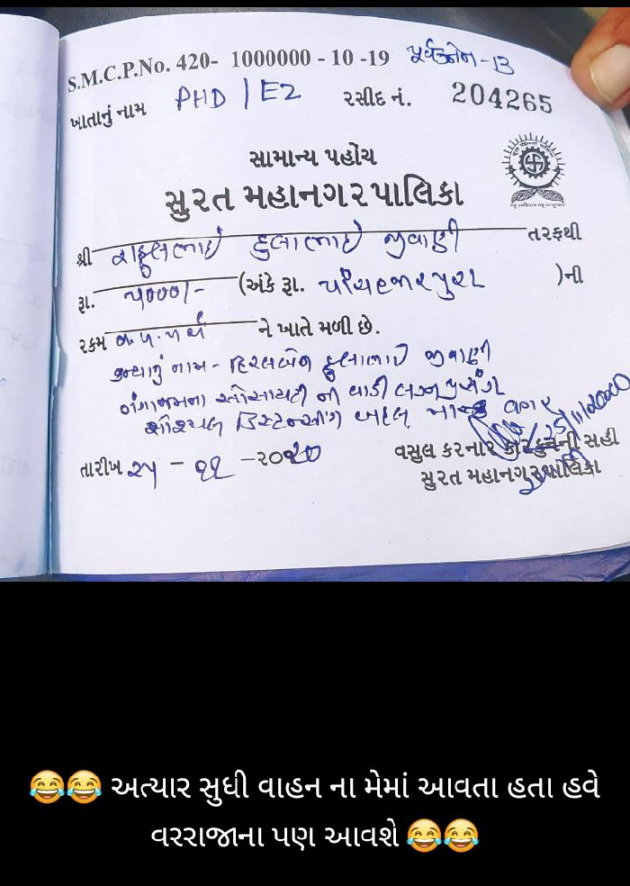 S.M.C.P.No. 420- 1000000 - 10 -19 પૂર્વઝોન-B
ખાતાનું નામ PHD / EZ રસીદ નં. 204265
સામાન્ય પહોંચ
સુરત મહાનગરપાલિકા
શ્રી રાહુલભાઈ દુલાભાઈ જીવાણી તરફથી
રૂા. ૫૦૦૦/- (અંકે રૂા. પાંચહજારપુરા )ની
રકમ વ.પ.ખર્ચ ને ખાતે મળી છે.
જગ્યાનું નામ - હિરલબેન દુલાભાઈ જીવાણી
સોસાયટી ની વાડી લગ્ન પ્રસંગ
સોશ્યલ ડિસ્ટન્સીંગ બદલ માસ્ક વગર
તારીખ ૨૫ - ૧૧ -૨૦૨૦
વસુલ કરનાર કારકુનની સહી
સુરત મહાનગરપાલિકા
😂😂 અત્યાર સુધી વાહન ના મેમાં આવતા હતા હવે
વરરાજાના પણ આવશે 😂😂